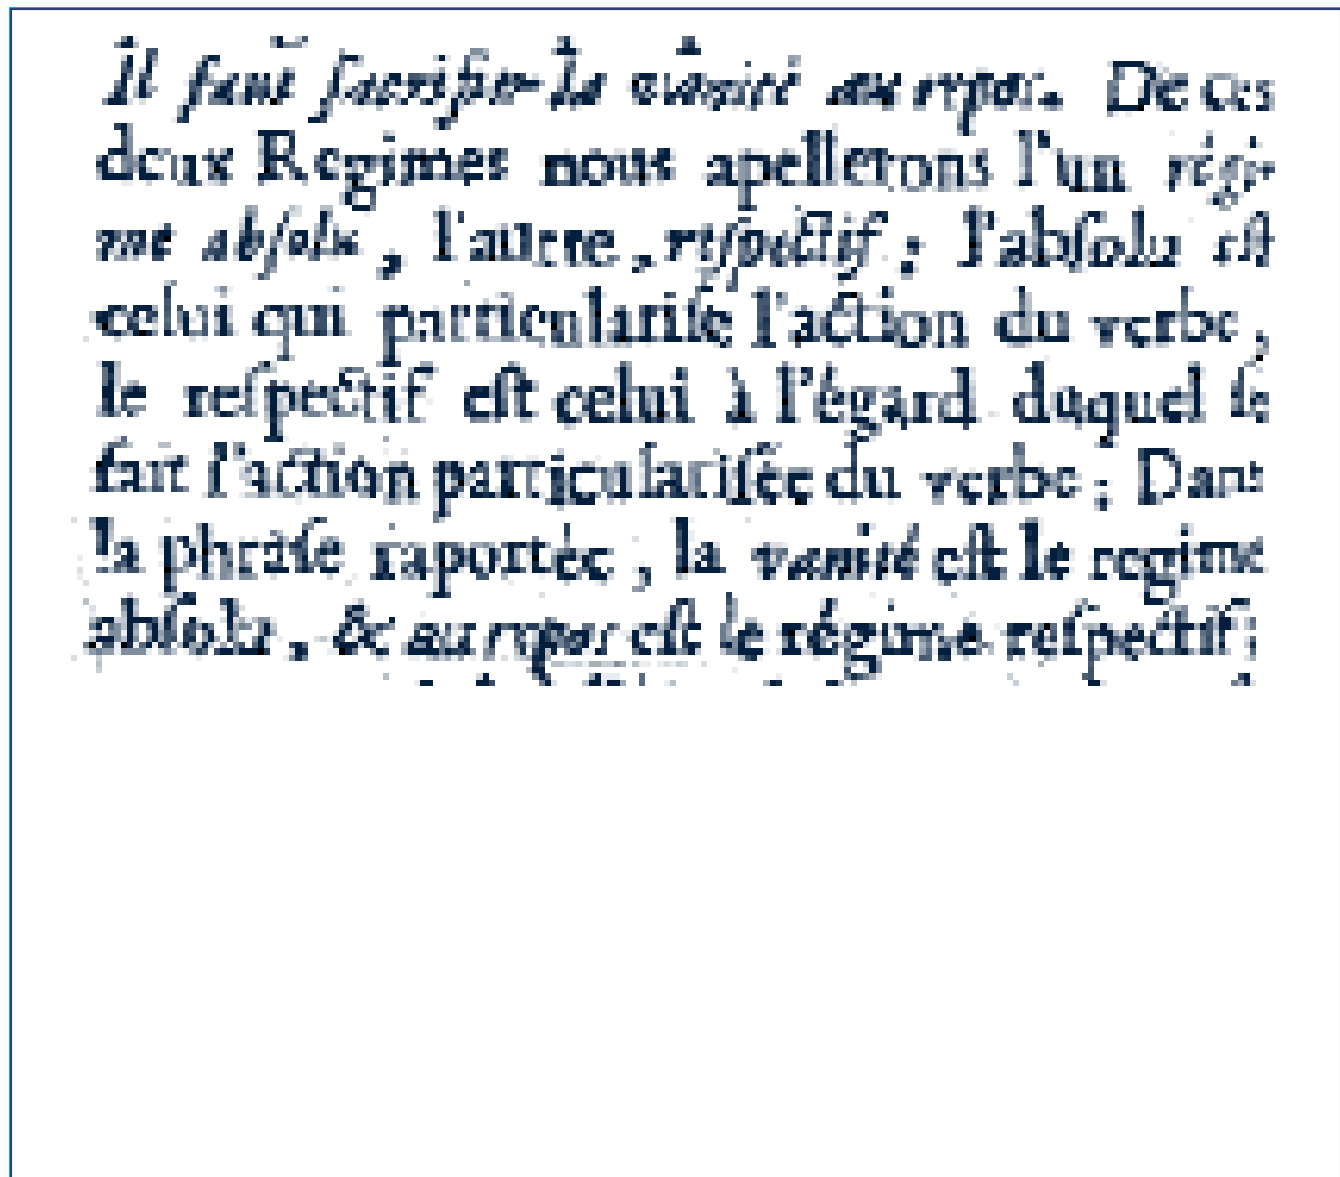 Il faut ſacrifier la vanité au repos. De ces
deux Regimes nous apellerons l'un régi-
me abſolu, l'autre, reſpectif; l'abſolu eſt
celui qui particulariſe l'action du verbe,
le reſpectif eſt celui à l'égard duquel ſe
fait l'action particulariſée du verbe; Dans
la phraſe raportée, la vanité eſt le regime
abſolu, & au repos eſt le régime reſpectif;